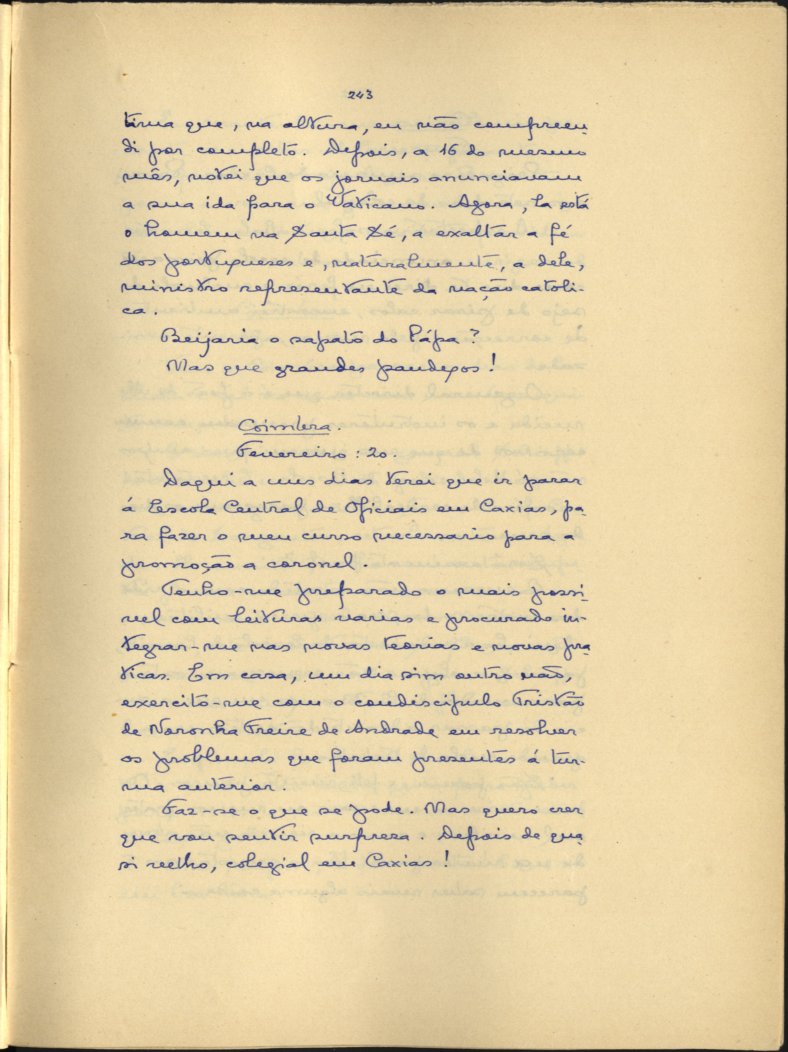 243
tima que, na altura, eu não compreen-
di por completo. Depois, a 16 do mesmo
mês, notei que os jornais anunciavam
a sua ida para o Vaticano. Agora, la está
o homem na Santa Sé, a exaltar a fé
dos portugueses e, naturalmente, a dele,
ministro representante da nação catoli-
ca.
Beijaria o sapato do Pápa?
Mas que grandes pandegos!
Coimbra.
Fevereiro: 20.
Daqui a uns dias terei que ir parar
á Escola Central de Oficiais em Caxias, pa-
ra fazer o meu curso necessario para a
promoção a coronel.
Tenho-me preparado o mais possi-
vel com leituras varias e procurado in-
tegrar-me nas novas teorias e novas pra-
ticas. Em casa, um dia sim outro não,
exercito-me com o condiscipulo Tristão
de Noronha Freire de Andrade em resolver
os problemas que foram presentes á tur-
ma anterior.
Faz-se o que se pode. Mas quero crer
que vou sentir surpreza. Depois de qua-
si velho, colegial em Caxias!